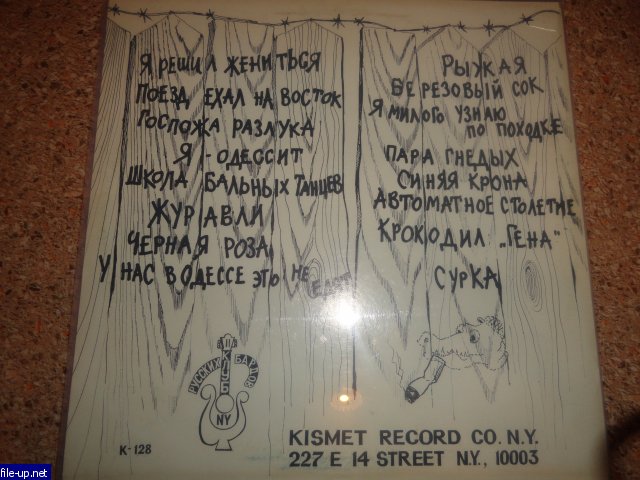 Я РЕШИЛ ЖЕНИТЬСЯ
ПОЕЗД ЕХАЛ НА ВОСТОК
ГОСПОЖА РАЗЛУКА
Я - ОДЕССИТ
ШКОЛА БАЛЬНЫХ ТАНЦЕВ
ЖУРАВЛИ
ЧЕРНАЯ РОЗА
У НАС В ОДЕССЕ ЭТО НЕ ЕДЯТ
РЫЖАЯ
БЕРЕЗОВЫЙ СОК
Я МИЛОГО УЗНАЮ
ПО ПОХОДКЕ
ПАРА ГНЕДЫХ
СИНЯЯ КРОНА
АВТОМАТНОЕ СТОЛЕТИЕ
КРОКОДИЛ „ГЕНА"
СУРКА
РУССКИХ БАРДОВ
КЛУБ
NY
K-128
KISMET RECORD CO. N.Y.
227 E 14 STREET N.Y., 10003
file-up.net